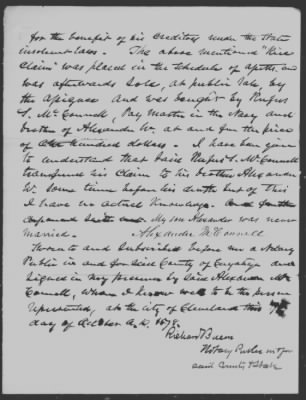 for the benefit of his creditors under the State
insolvent laws. The above mentioned "
Claim" was placed in the schedule of assets and
was afterwards sold, at public sale by
the Assignee and was bought by Rufus
S. McConnell, Pay Master in the Navy and
brother of Alexander W. at and for the price
of One hundred dollars. I have been given
to understand that said Rufus S. McConnell
transferred his claim to his brother Alexander
W. some time before his death but of this
I have no actual knowledge.
My son Alexander was never
married. Alexander McConnell
Sworn to and Subscribed before me a Notary
Public in and for said County of Cuyahoga and
signed in my presence by said Alexander Mc
Connell, whom I know well to be the person
represented, at the City of Cleveland this
day of October A.D. 1878.
Richard
Notary Public in & for
said County & State